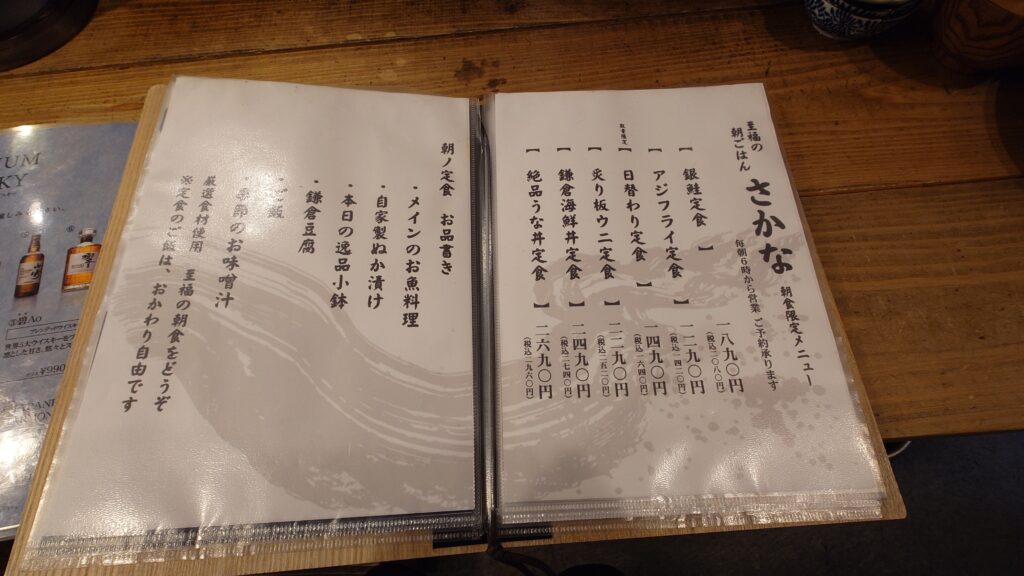 至福の
朝ごはん
さかな 朝食限定メニュー
毎朝6時から営業 ご予約承ります
【銀鮭定食】 一八九〇円
(税込二〇八〇円)
【アジフライ定食】 一二九〇円
(税込一四二〇円)
数量限定
【日替わり定食】 一四九〇円
(税込一六四〇円)
【炙り板ウニ定食】 二二九〇円
(税込二五二〇円)
【鎌倉海鮮丼定食】 二四九〇円
(税込二七四〇円)
【絶品うな丼定食】 二六九〇円
(税込二九六〇円)
朝ノ定食 お品書き
・メインのお魚料理
・自家製ぬか漬け
・本日の逸品小鉢
・鎌倉豆腐
・ご飯
・季節のお味噌汁
厳選食材使用 至福の朝食をどうぞ
※定食のご飯は、おかわり自由です
UM
KY
碧Ao
¥990